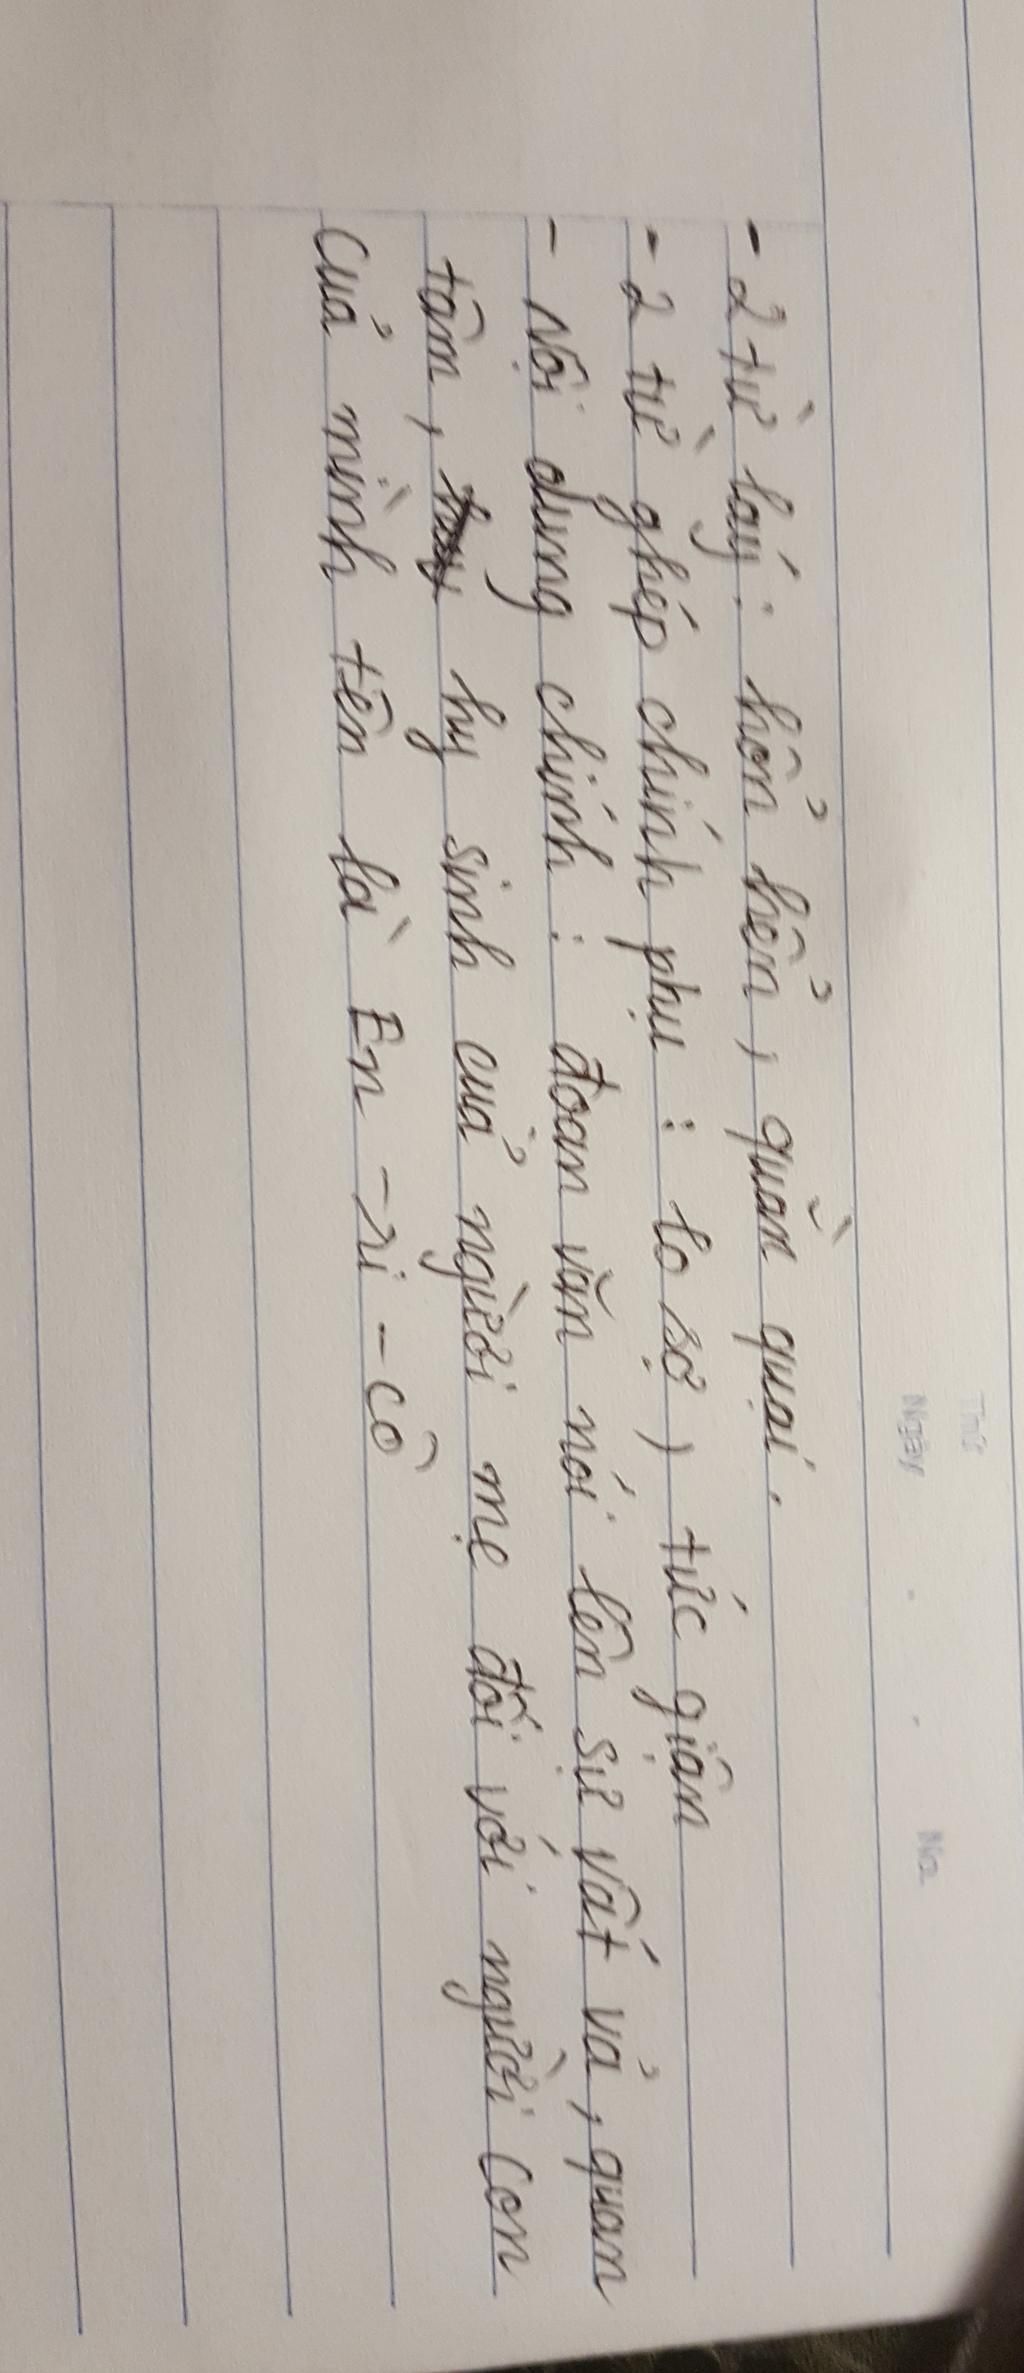 Thứ
Ngày . . No.
- 2 từ láy : hổn hển , quằn quại .
- 2 từ ghép chính phụ : lo sợ , tức giận
- Nội dung chính : đoan văn nói lên sự vất vả , quan
tâm , hy sinh của người mẹ đối với người con
của mình tên là En - ri - cô